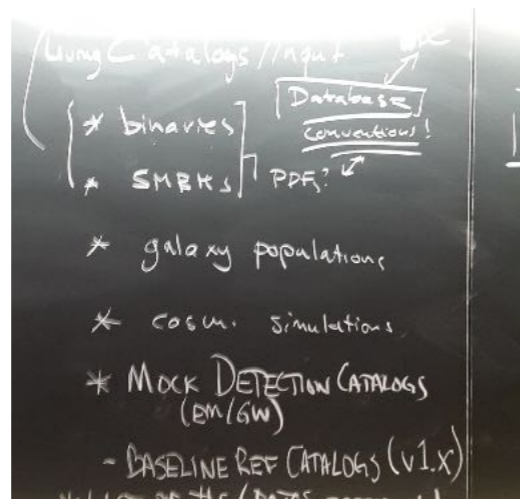 Living Catalogs / Input
Database
* binaries
conventions!
* SMBHs
PDFs?
* galaxy populations
* cosm. simulations
* MOCK DETECTION CATALOGS
(EM/GW)
- BASELINE REF CATALOGS (v1.x)